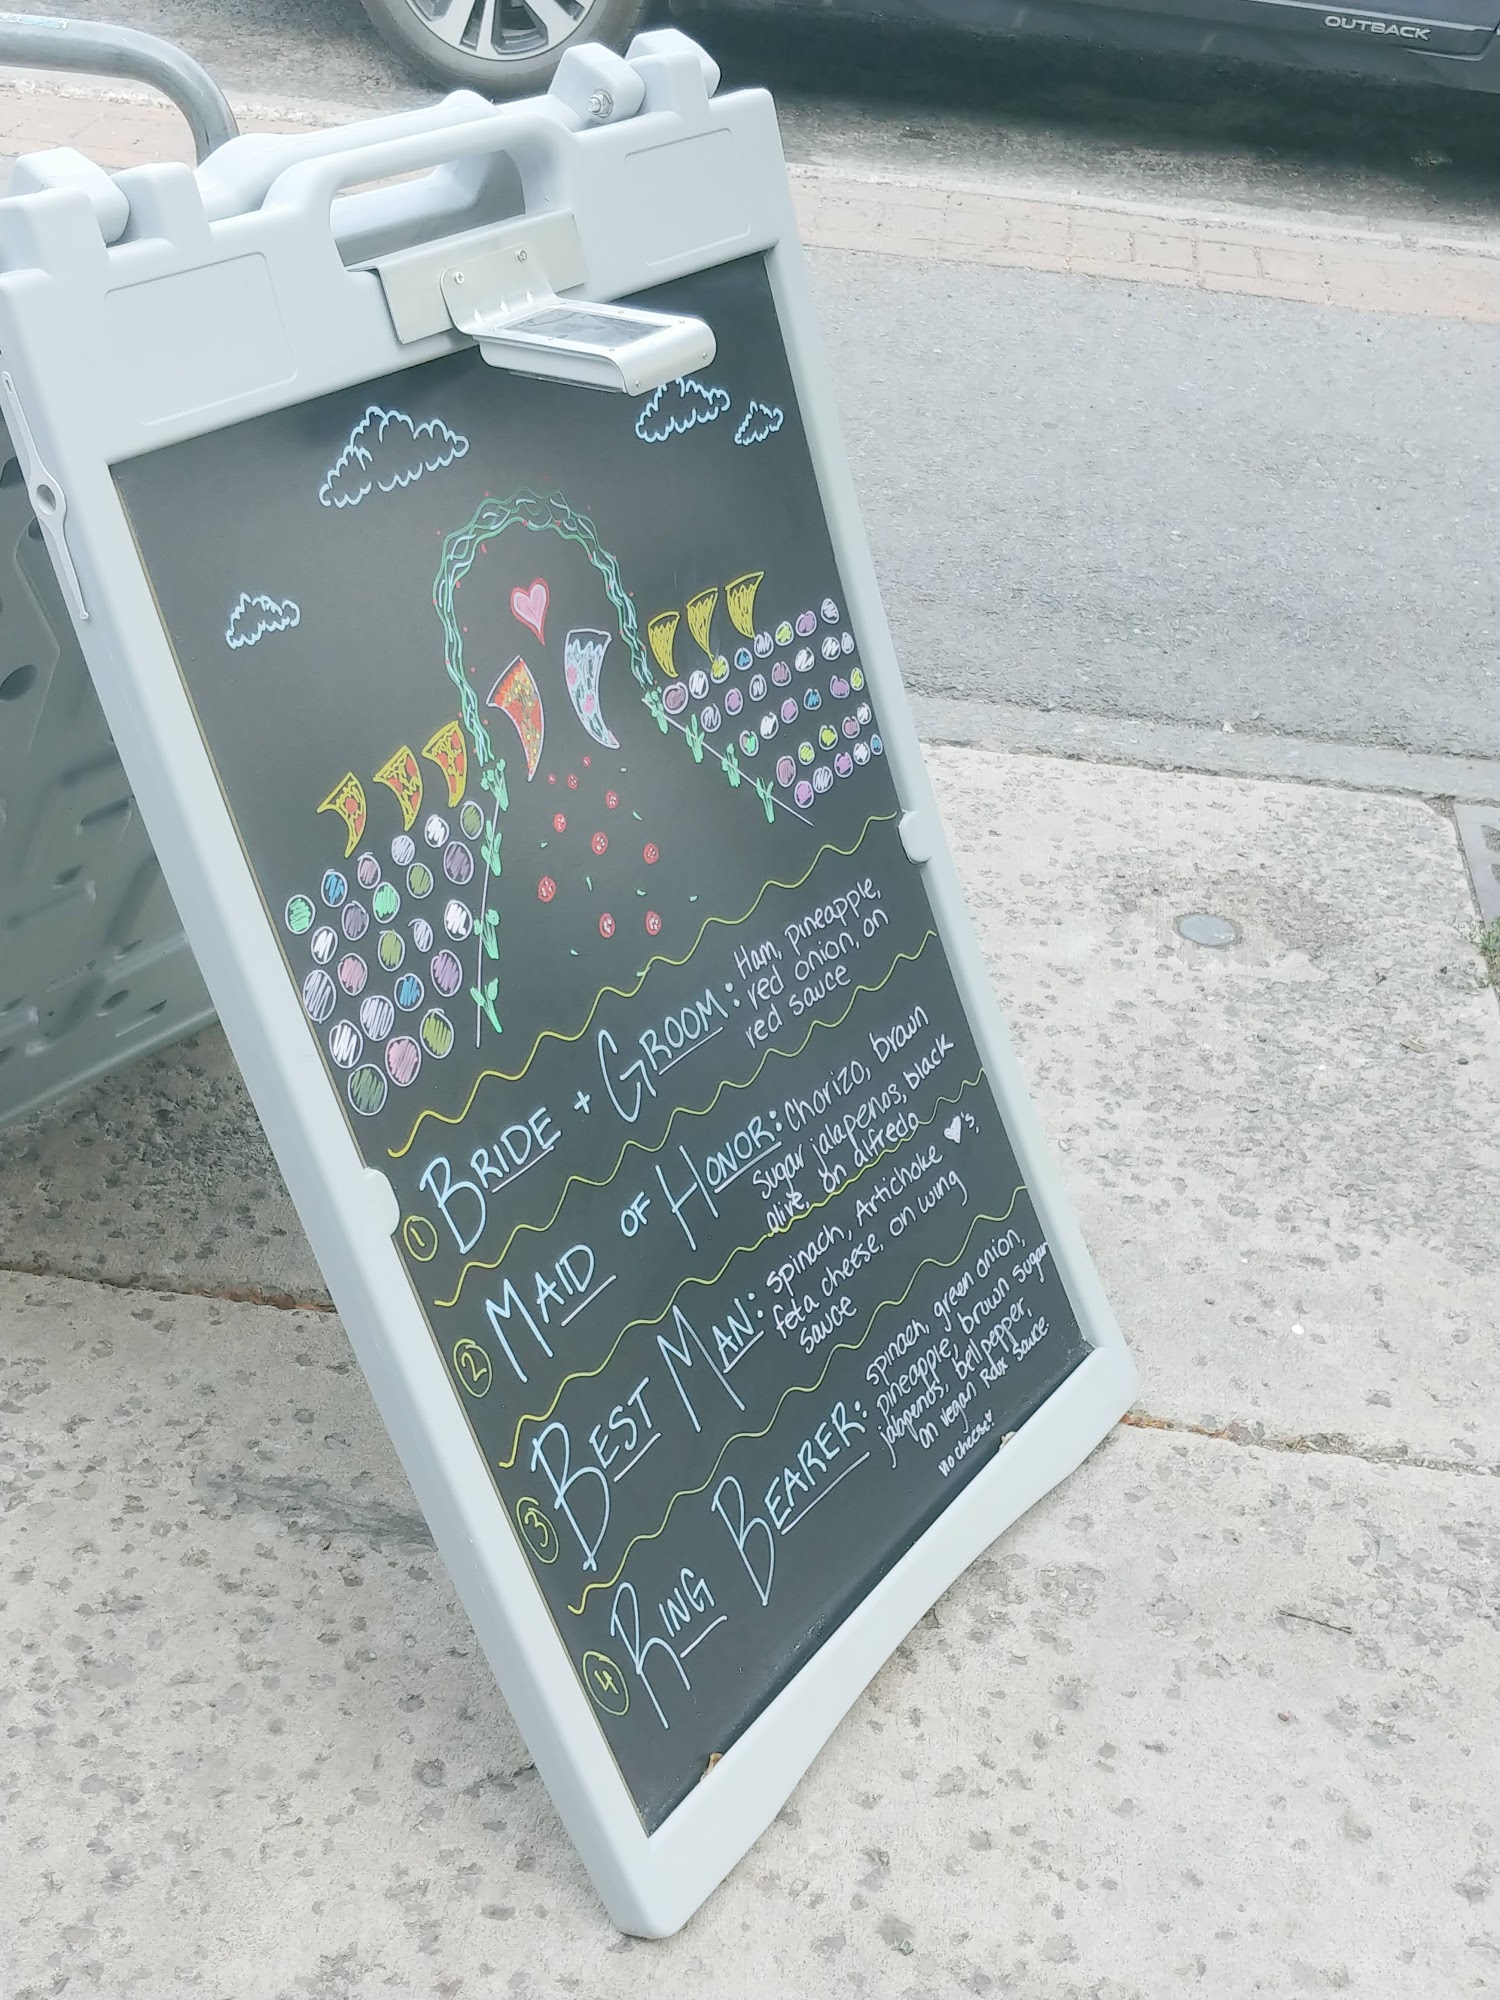 OUTBACK
① BRIDE + GROOM: Ham, pineapple,
red onion, on
red sauce
② MAID OF HONOR: Chorizo, brown
sugar jalapenos, black
olive, on alfredo
③ BEST MAN: spinach, Artichoke ♥'s,
feta cheese, on wing
sauce
④ RING BEARER: spinach, green onion,
pineapple, brown sugar
jalapenos, bell pepper,
on vegan Rdux Sauce
no cheese!